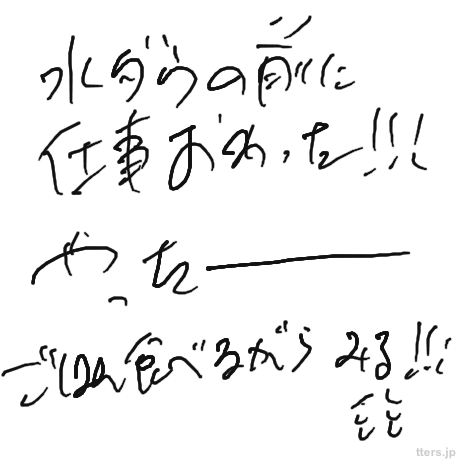 水ダウの前に
仕事おわった!!!
やったー
ごはん食べるがらみる!!!
tters.jp